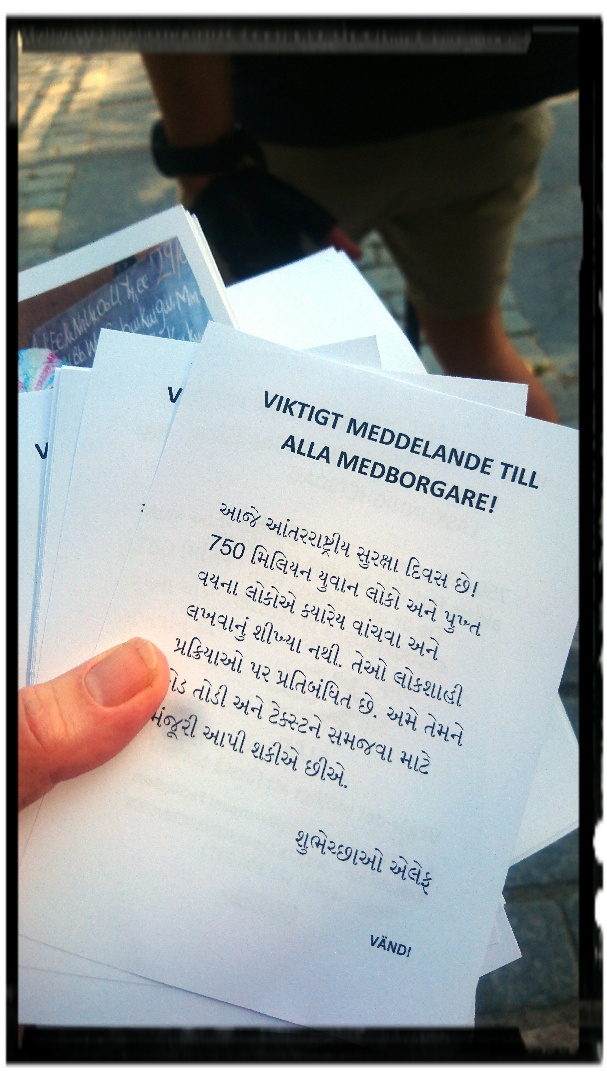 VIKTIGT MEDDELANDE TILL
ALLA MEDBORGARE!
આજે આંતરરાષ્ટ્રીય સુરક્ષા દિવસ છે!
750 મિલિયન યુવાન લોકો અને પુખ્ત
વયના લોકોએ ક્યારેય વાંચવા અને
લખવાનું શીખ્યા નથી. તેઓ લોકશાહી
પ્રક્રિયાઓ પર પ્રતિબંધિત છે. અમે તેમને
તોડી અને ટેક્સ્ટને સમજવા માટે
મંજૂરી આપી શકીએ છીએ.
શુભેચ્છાઓ એલેફ
VÄND!